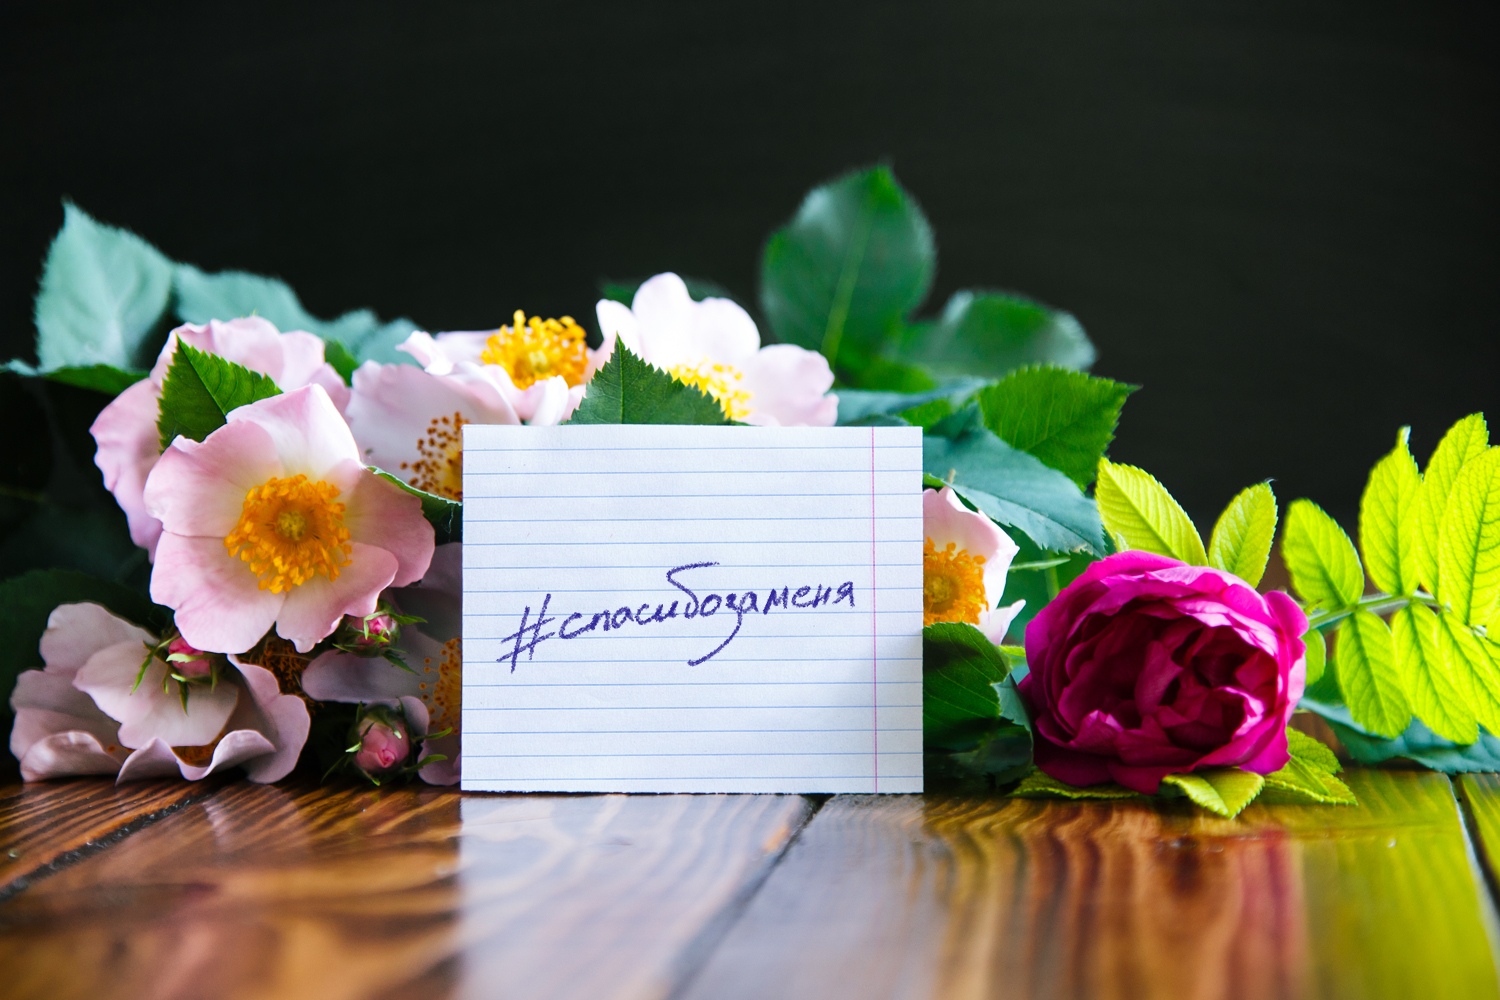 #спасибозаменя